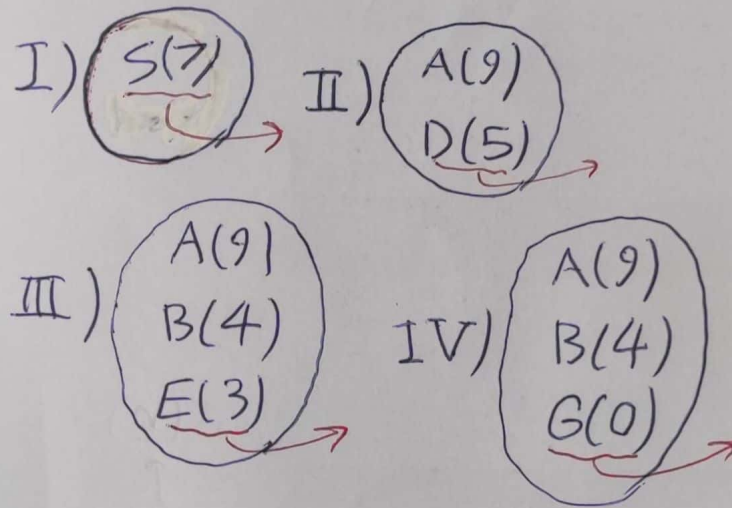 I) S(7)
II) A(9)
D(5)
III) A(9)
B(4)
E(3)
IV) A(9)
B(4)
G(0)